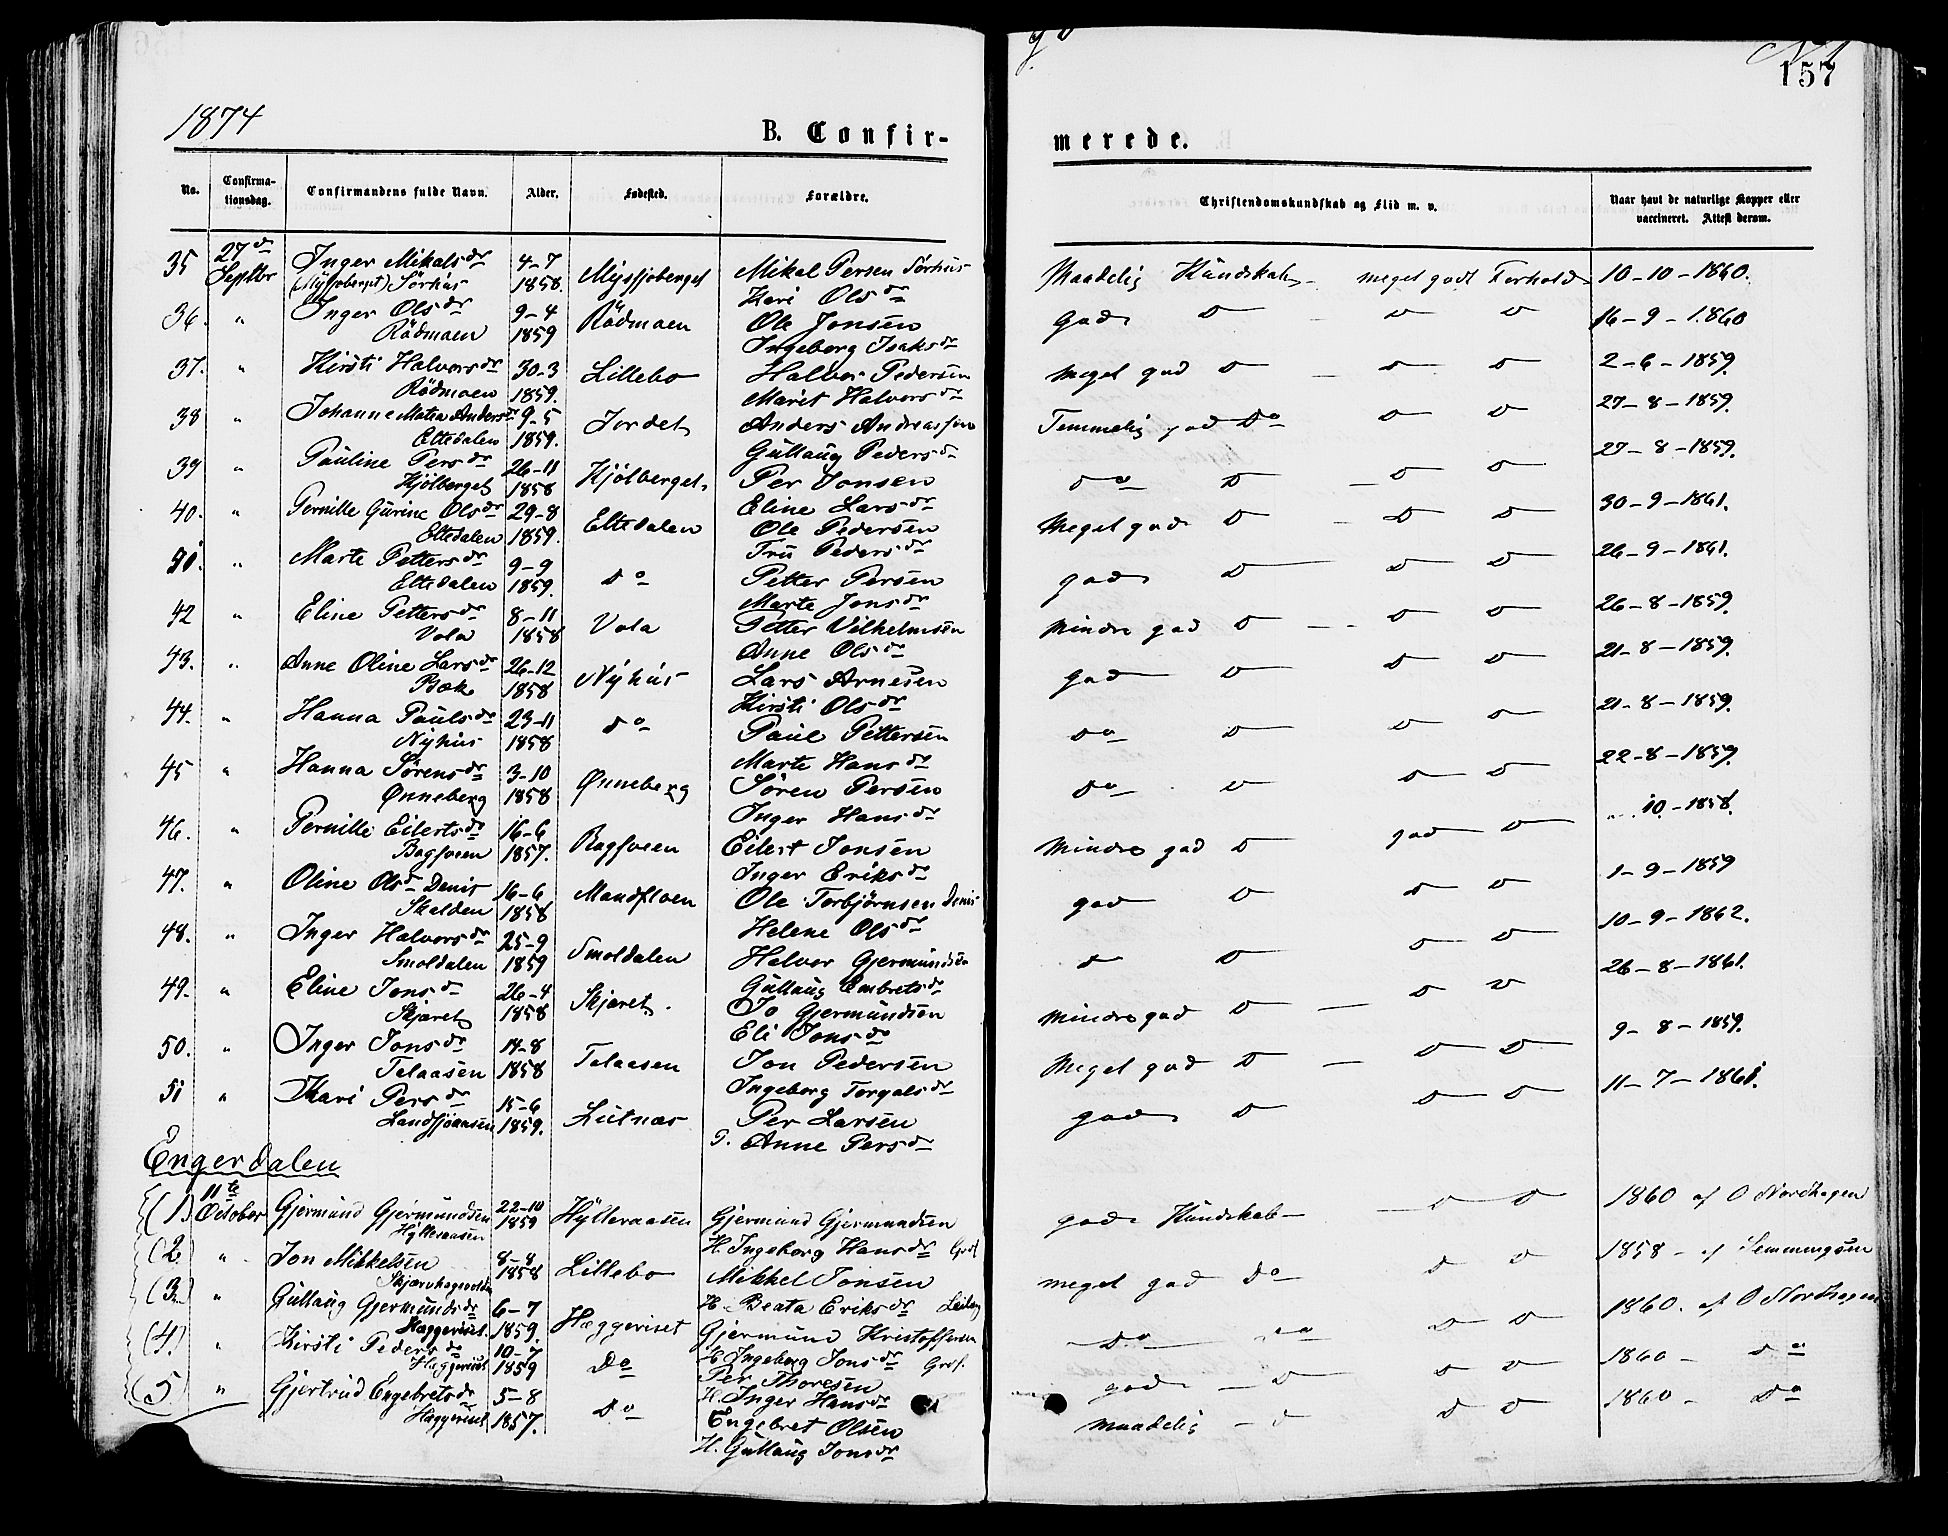 157
1874
B. Confir-
merede.
No. Confirma-tionsdag. Confirmandens fulde Navn. Alder. Fødested. Forældre. Christendomskundskab og Flid m. v. Naar havt de naturlige Kopper eller vaccineret. Attest derom.
35 27de Septbr Inger Mikalsdr (Myssjoberget) Sørhus 4-7 1858. Myssjoberget Mikal Persen Sørhus Kari Olsdr Maadelig Kundskab meget godt Forhold 10-10-1860.
36. " Inger Olsdr Rödmoen 9-4 1859 Rödmoen Ole Jonsen Ingeborg Isaksdr god D - D D 16-9-1860
37. " Kirsti Halvorsdr Rödmoen 30-3 1859. Lillebo Halvor Pedersen Marit Halvorsdr Meget god D - D D 2-6-1859.
38 " Johanne Matea Andersdr Eltedalen 9-5 1859. Jordet Anders Andreassen Gullaug Pedersdr Temmelig god Do D D 27-8-1859.
39 " Pauline Persdr Kjölberget 26-11 1858 Kjölberget Per Jonsen Eline Larsdr Do D - D D 27-8-1859.
40. " Pernille Gurine Olsdr Eltedalen 29-8 1859. Eltedalen Ole Pedersen Tru Pedersdr Meget god D - D D 30-9-1861.
41. " Marte Pettersdr Eltedalen 9-9 1859. Do Petter Persen Marte Jonsdr god D D D 26-9-1861.
42 " Eline Pettersdr Vola 8-11 1858 Vola Petter Vilhelmsen Anne Olsdr Mindre god D - D D 26-8-1859.
43. " Anne Oline Larsdr Bæk 26-12 1858 Nyhus Lars Arnesen Kirsti Olsdr god D D D 21-8-1859.
44. " Hanna Paulsdr Nyhus 23-11 1858 Do Paul Pettersen Marte Hansdr Do D D D 21-8-1859.
45 " Hanna Sørensdr Ønneberg 3-10 1858 Ønneberg Sören Persen Inger Hansdr Do D D D 22-8-1859.
46. " Pernille Eilertsdr Bagfoeen 16-6 1857. Bagfoeen Eilert Jonsen Inger Eriksdr Mindre god D god D 10-1858.
47. " Oline Olsdr Denis Skalden 16-6 1858 Mandfloen Ole Torbjörnsen Denis Helene Olsdr god D D D 1-9-1859
48. " Inger Halvorsdr Smoldalen 25-9 1859 Smoldalen Halvor Gjermundsen Gullaug Embretsdr D D D D 10-9-1862.
49. " Eline Jonsdr Skjæret 26-4 1858 Skjæret. Jo Gjermundsen Eli Jonsdr Mindre god D - D D 26-8-1861.
50. " Inger Jonsdr Talaasen 14-8 1858 Talaasen Jon Pedersen Ingeborg Torgalsdr Meget god D - D D 9-8-1859.
51 " Kari Persdr Landsjøaasen 15-6 1859. Lutnæs Per Larsen P. Anne Persdr god D D D 11-7-1861.
Engerdalen
(1.) 11te October Gjermund Gjermundsen Hylleraasen 22-10 1859 Hylleraasen Gjermund Gjermundsen H. Ingeborg Hansdr god Kundskab - D D 1860 af O Nordhagen
(2.) " Jon Mikkelsen 8-8 1858 Lillebo Mikkel Jonsen H. Beata Eriksdr meget god Do D D 1858 - af Semmingsen
(3.) " Gullaug Gjermundsdr Hæggeriset. 6-7 1859. Hæggeriset Gjermund Kristoffersen H. Ingeborg Jonsdr Do Do D D 1860. af O Nordhagen
(4.) " Kirsti Pedersdr Hæggeriset 10-7 1859 Do Per Thoresen H. Inger Hansdr god - D D D 1860 - Do
(5.) " Gjertrud Engebretsdr Hæggeriset 5-8 1857. Do Engebret Olsen H. Gullaug Jonsdr maadelig - D D D 1860 - Do